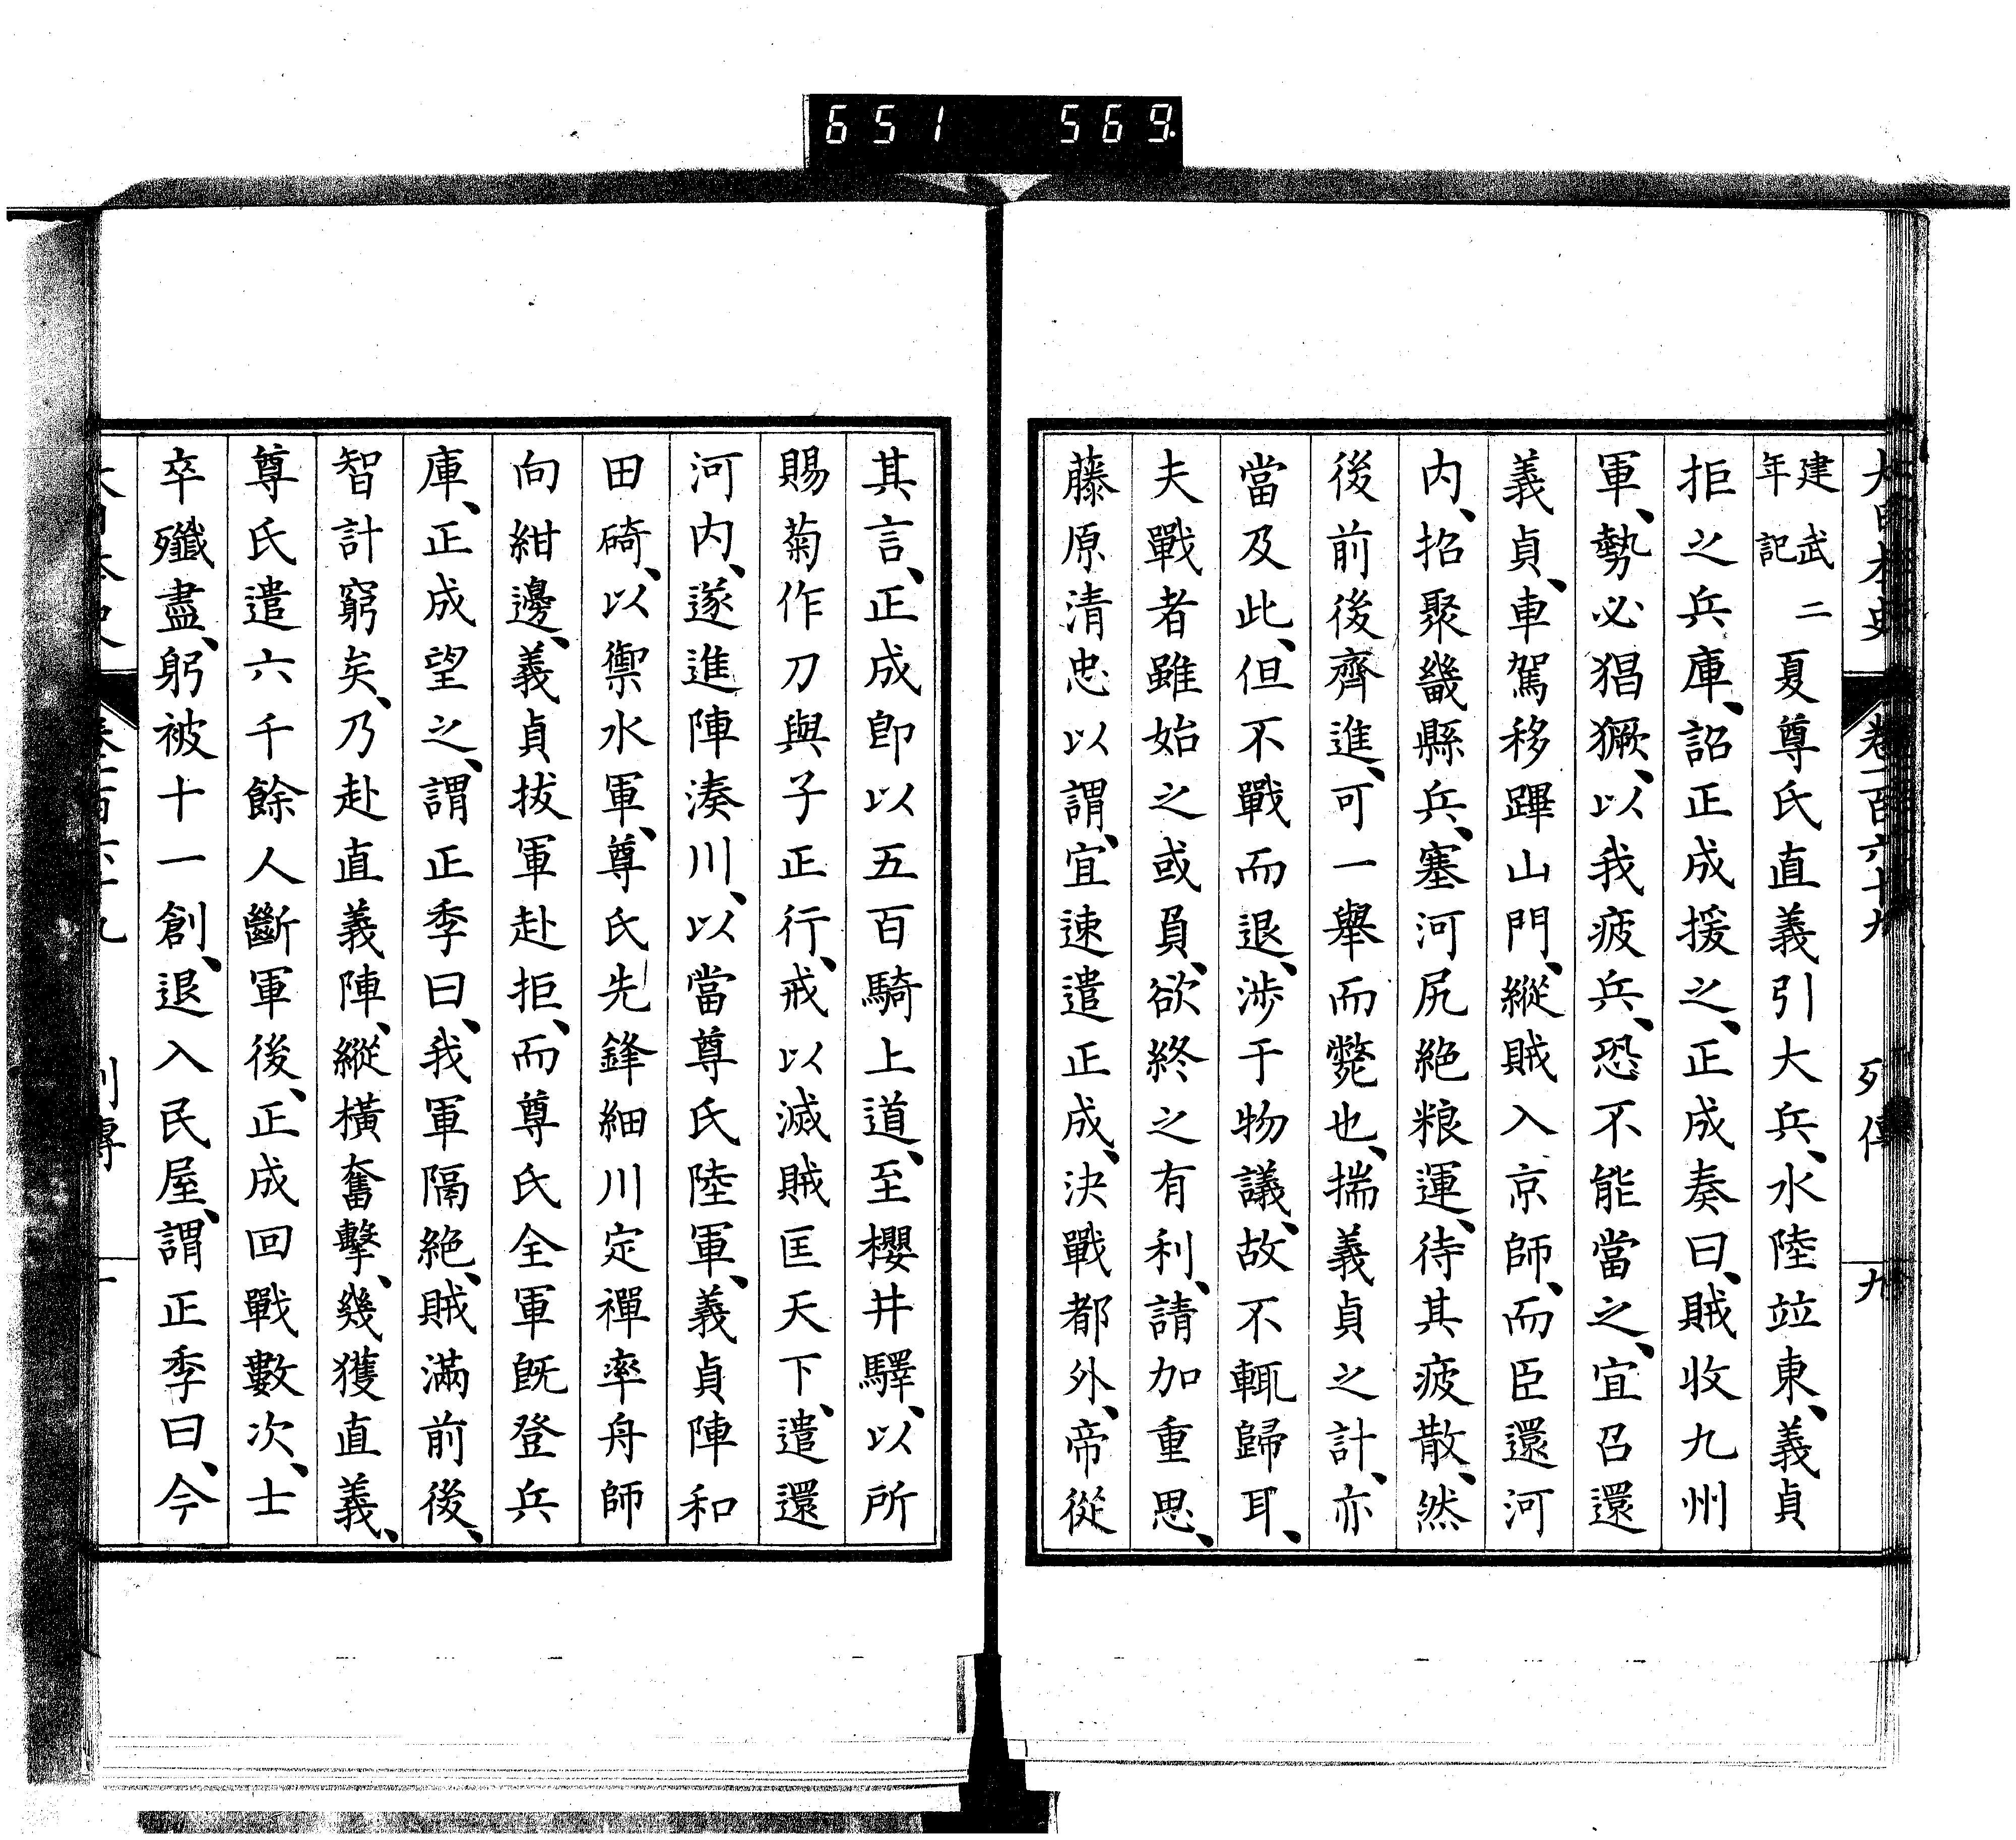 651 569
大日本史 卷一百六十九 列傳 九
建武二年記 夏尊氏直義引大兵、水陸竝東、義貞
拒之兵庫、詔正成援之、正成奏曰、賊收九州
軍、勢必猖獗、以我疲兵、恐不能當之、宜召還
義貞、車駕移蹕山門、縱賊入京師、而臣還河
内、招聚畿縣兵、塞河尻絶粮運、待其疲散、然
後前後齊進、可一擧而斃也、揣義貞之計、亦
當及此、但不戰而退、渉于物議、故不輒歸耳、
夫戰者雖始之或負、欲終之有利、請加重思、
藤原清忠以謂、宜速遣正成、決戰都外、帝從
其言、正成卽以五百騎上道、至櫻井驛、以所
賜菊作刀與子正行、戒以滅賊匡天下、遣還
河内、遂進陣湊川、以當尊氏陸軍、義貞陣和
田碕、以禦水軍、尊氏先鋒細川定禪率舟師
向紺邊、義貞拔軍赴拒、而尊氏全軍旣登兵
庫、正成望之、謂正季曰、我軍隔絶、賊滿前後、
智計窮矣、乃赴直義陣、縱橫奮擊、幾獲直義、
尊氏遣六千餘人斷軍後、正成回戰數次、士
卒殲盡、躬被十一創、退入民屋、謂正季曰、今